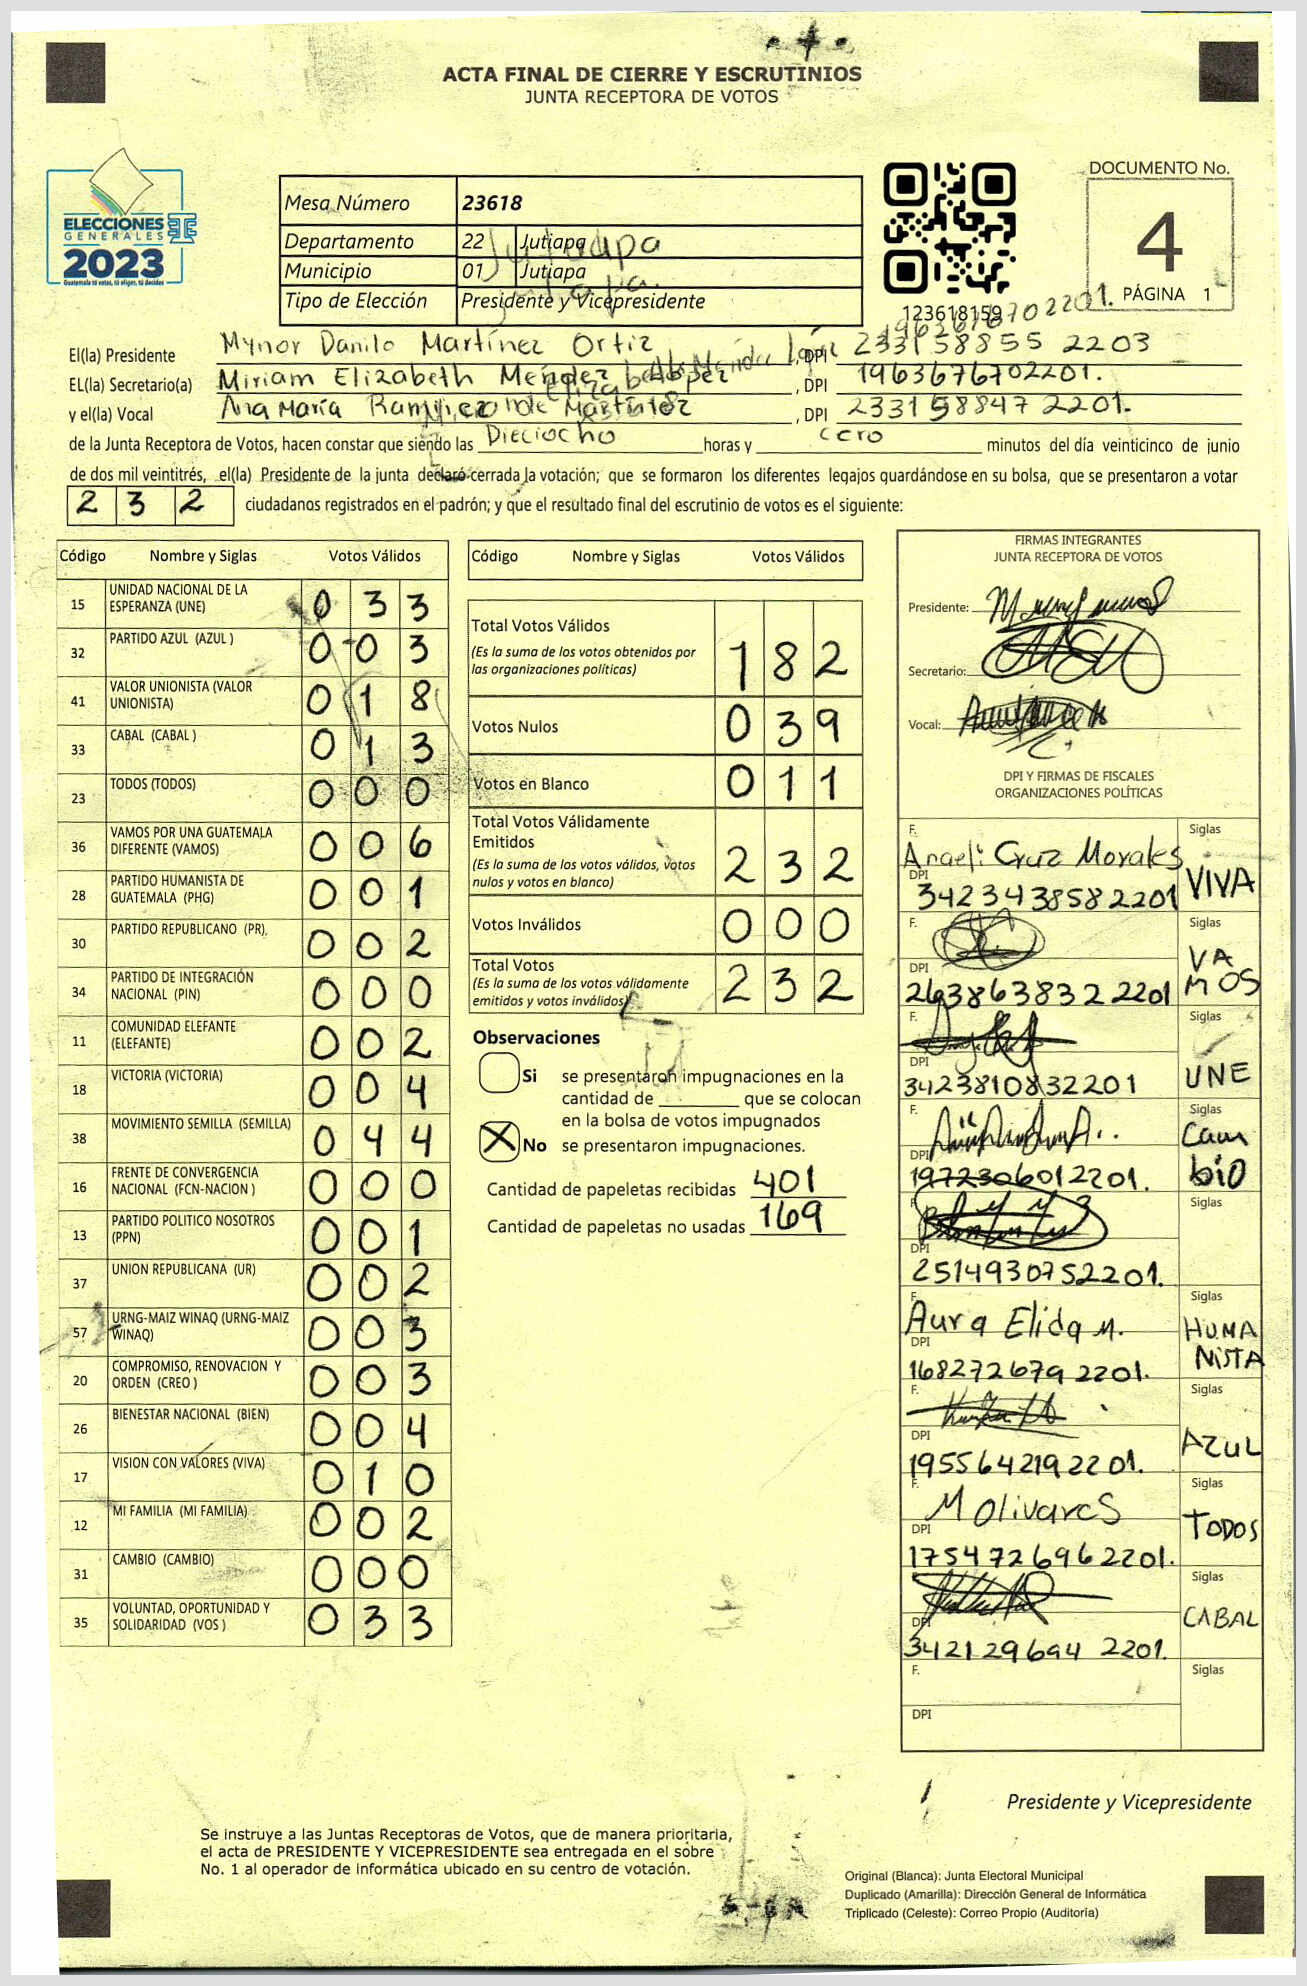 ACTA FINAL DE CIERRE Y ESCRUTINIOS
JUNTA RECEPTORA DE VOTOS
ELECCIONES
GENERALES
2023
Guatemala tú votas, tú eliges, tú decides
Mesa Número 23618
Departamento 22 Jutiapa
Municipio 01 Jutiapa
Tipo de Elección Presidente y Vicepresidente
123618159
DOCUMENTO No.
4
PÁGINA 1
El(la) Presidente Mynor Danilo Martínez Ortiz, DPI 233158855 2203
EL(la) Secretario(a) Miriam Elizabeth Méndez López, DPI 1963676702201.
y el(la) Vocal Ana María Ramírez de Martínez, DPI 233158847 2201.
de la Junta Receptora de Votos, hacen constar que siendo las Dieciocho horas y cero minutos del día veinticinco de junio
de dos mil veintitrés, el(la) Presidente de la junta declaró cerrada la votación; que se formaron los diferentes legajos guardándose en su bolsa, que se presentaron a votar
232 ciudadanos registrados en el padrón; y que el resultado final del escrutinio de votos es el siguiente:
Código Nombre y Siglas Votos Válidos
15 UNIDAD NACIONAL DE LA ESPERANZA (UNE) 033
32 PARTIDO AZUL (AZUL ) 003
41 VALOR UNIONISTA (VALOR UNIONISTA) 018
33 CABAL (CABAL ) 013
23 TODOS (TODOS) 000
36 VAMOS POR UNA GUATEMALA DIFERENTE (VAMOS) 006
28 PARTIDO HUMANISTA DE GUATEMALA (PHG) 001
30 PARTIDO REPUBLICANO (PR) 002
34 PARTIDO DE INTEGRACIÓN NACIONAL (PIN) 000
11 COMUNIDAD ELEFANTE (ELEFANTE) 002
18 VICTORIA (VICTORIA) 004
38 MOVIMIENTO SEMILLA (SEMILLA) 044
16 FRENTE DE CONVERGENCIA NACIONAL (FCN-NACION ) 000
13 PARTIDO POLITICO NOSOTROS (PPN) 001
37 UNION REPUBLICANA (UR) 002
57 URNG-MAIZ WINAQ (URNG-MAIZ WINAQ) 003
20 COMPROMISO, RENOVACION Y ORDEN (CREO ) 003
26 BIENESTAR NACIONAL (BIEN) 004
17 VISION CON VALORES (VIVA) 010
12 MI FAMILIA (MI FAMILIA) 002
31 CAMBIO (CAMBIO) 000
35 VOLUNTAD, OPORTUNIDAD Y SOLIDARIDAD (VOS ) 033
Código Nombre y Siglas Votos Válidos
Total Votos Válidos 182
(Es la suma de los votos obtenidos por las organizaciones políticas)
Votos Nulos 039
Votos en Blanco 011
Total Votos Válidamente Emitidos 232
(Es la suma de los votos válidos, votos nulos y votos en blanco)
Votos Inválidos 000
Total Votos 232
(Es la suma de los votos válidamente emitidos y votos inválidos)
Observaciones
Si se presentaron impugnaciones en la
cantidad de ________ que se colocan
en la bolsa de votos impugnados
X No se presentaron impugnaciones.
Cantidad de papeletas recibidas 401
Cantidad de papeletas no usadas 169
FIRMAS INTEGRANTES
JUNTA RECEPTORA DE VOTOS
Presidente:
Secretario:
Vocal:
DPI Y FIRMAS DE FISCALES
ORGANIZACIONES POLÍTICAS
F. Angeli Cruz Morales Siglas
DPI 3423438582201 VIVA
F. Siglas
DPI 2638638322201 VAMOS
F. Siglas
DPI 3423810832201 UNE
F. Siglas
DPI 1972306012201. Cambio
F. Siglas
DPI 2514930752201.
F. Aura Elida M. Siglas
DPI 168272679 2201. HUMANISTA
F. Siglas
DPI 1955642192201. AZUL
F. M Olivares Siglas
DPI 1754726962201. TODOS
F. Siglas
DPI 342129694 2201. CABAL
F. Siglas
DPI
Presidente y Vicepresidente
Se instruye a las Juntas Receptoras de Votos, que de manera prioritaria,
el acta de PRESIDENTE Y VICEPRESIDENTE sea entregada en el sobre
No. 1 al operador de informática ubicado en su centro de votación.
Original (Blanca): Junta Electoral Municipal
Duplicado (Amarilla): Dirección General de Informática
Triplicado (Celeste): Correo Propio (Auditoría)